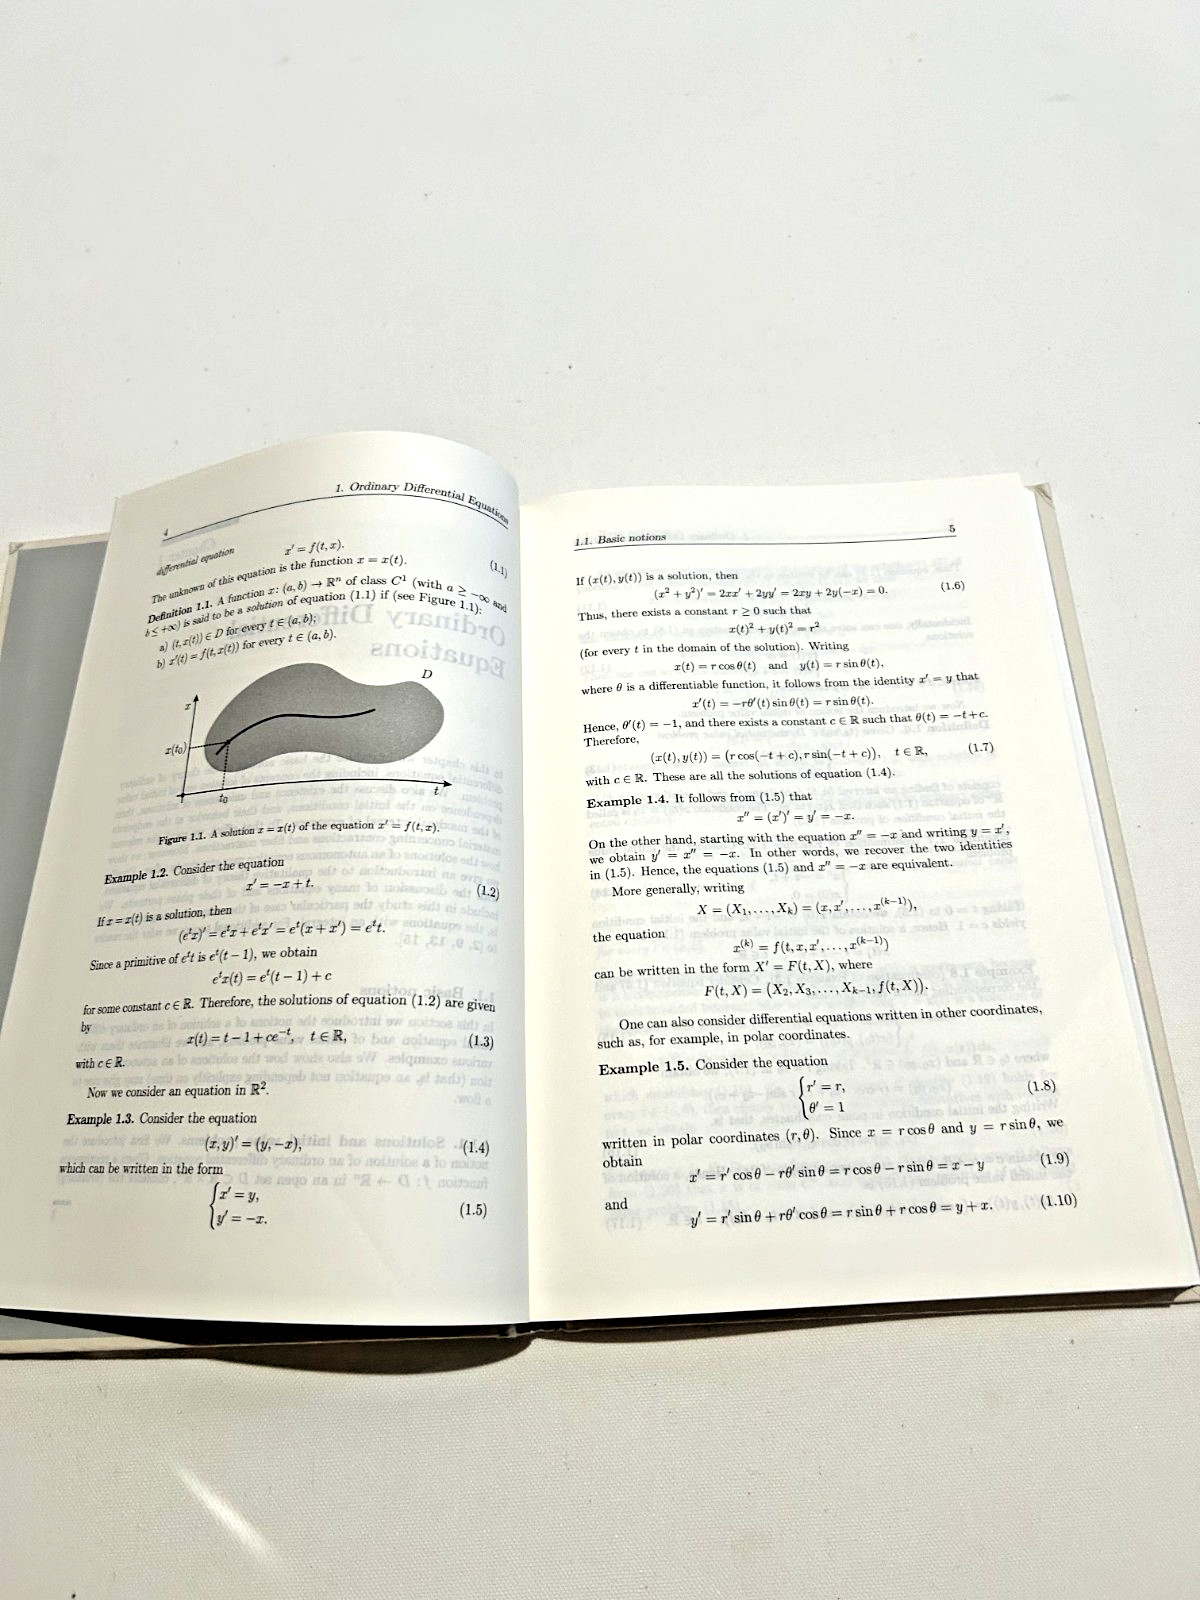 4
1. Ordinary Differential Equations
differential equation
x′ = f(t, x). (1.1)
The unknown of this equation is the function x = x(t).
Definition 1.1. A function x: (a, b) → ℝⁿ of class C¹ (with a ≥ −∞ and
b ≤ +∞) is said to be a solution of equation (1.1) if (see Figure 1.1):
a) (t, x(t)) ∈ D for every t ∈ (a, b);
b) x′(t) = f(t, x(t)) for every t ∈ (a, b).
D
x
x(t₀)
t₀
t
Figure 1.1. A solution x = x(t) of the equation x′ = f(t, x).
Example 1.2. Consider the equation
x′ = −x + t. (1.2)
If x = x(t) is a solution, then
(eᵗx)′ = eᵗx + eᵗx′ = eᵗ(x + x′) = eᵗt.
Since a primitive of eᵗt is eᵗ(t − 1), we obtain
eᵗx(t) = eᵗ(t − 1) + c
for some constant c ∈ ℝ. Therefore, the solutions of equation (1.2) are given
by
x(t) = t − 1 + ce⁻ᵗ, t ∈ ℝ, (1.3)
with c ∈ ℝ.
Now we consider an equation in ℝ².
Example 1.3. Consider the equation
(x, y)′ = (y, −x), (1.4)
which can be written in the form
{ x′ = y,
y′ = −x. (1.5)
1.1. Basic notions
5
If (x(t), y(t)) is a solution, then
(x² + y²)′ = 2xx′ + 2yy′ = 2xy + 2y(−x) = 0. (1.6)
Thus, there exists a constant r ≥ 0 such that
x(t)² + y(t)² = r²
(for every t in the domain of the solution). Writing
x(t) = r cos θ(t) and y(t) = r sin θ(t),
where θ is a differentiable function, it follows from the identity x′ = y that
x′(t) = −rθ′(t) sin θ(t) = r sin θ(t).
Hence, θ′(t) = −1, and there exists a constant c ∈ ℝ such that θ(t) = −t+c.
Therefore,
(x(t), y(t)) = (r cos(−t + c), r sin(−t + c)), t ∈ ℝ, (1.7)
with c ∈ ℝ. These are all the solutions of equation (1.4).
Example 1.4. It follows from (1.5) that
x″ = (x′)′ = y′ = −x.
On the other hand, starting with the equation x″ = −x and writing y = x′,
we obtain y′ = x″ = −x. In other words, we recover the two identities
in (1.5). Hence, the equations (1.5) and x″ = −x are equivalent.
More generally, writing
X = (X₁, . . . , Xₖ) = (x, x′, . . . , x⁽ᵏ⁻¹⁾),
the equation
x⁽ᵏ⁾ = f(t, x, x′, . . . , x⁽ᵏ⁻¹⁾)
can be written in the form X′ = F(t, X), where
F(t, X) = (X₂, X₃, . . . , Xₖ₋₁, f(t, X)).
One can also consider differential equations written in other coordinates,
such as, for example, in polar coordinates.
Example 1.5. Consider the equation
{ r′ = r,
θ′ = 1 (1.8)
written in polar coordinates (r, θ). Since x = r cos θ and y = r sin θ, we
obtain
x′ = r′ cos θ − rθ′ sin θ = r cos θ − r sin θ = x − y (1.9)
and
y′ = r′ sin θ + rθ′ cos θ = r sin θ + r cos θ = y + x. (1.10)